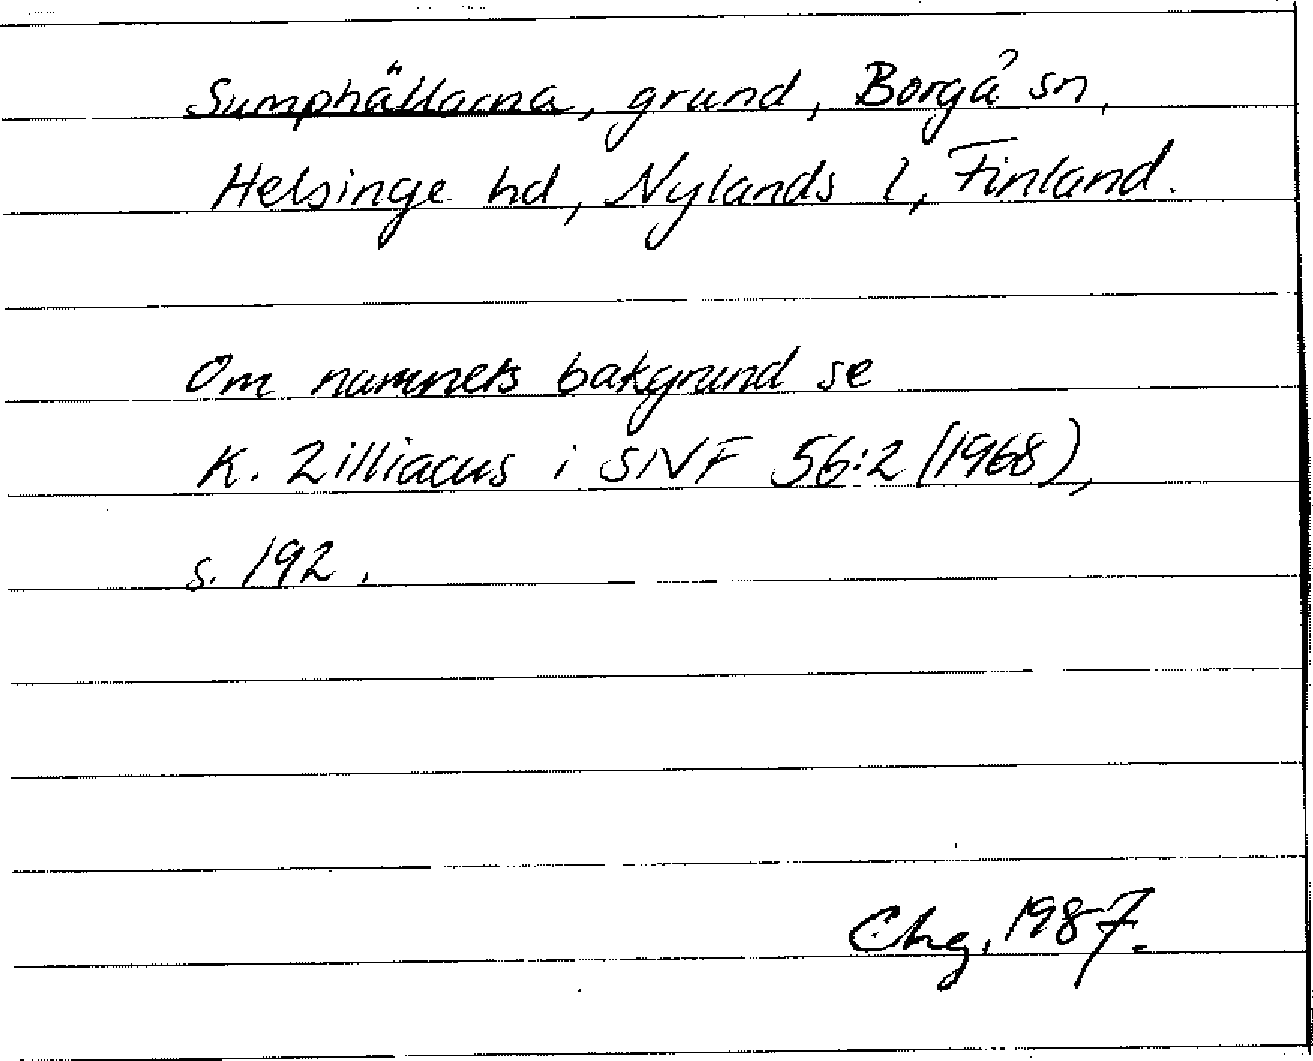 Sumphällarna, grund, Borgå sn,
Helsinge hd, Nylands l, Finland.
Om namnets bakgrund se
K. Zilliacus i SNF 56:2 (1968),
s. 192.
Chg, 1987.